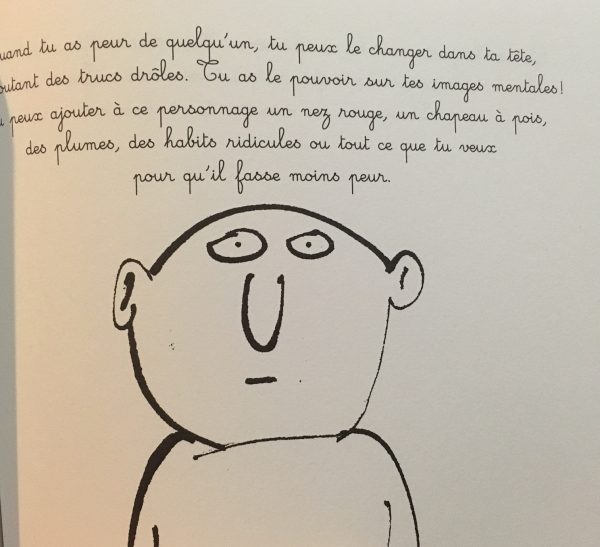 uand tu as peur de quelqu'un, tu peux le changer dans ta tête,
outant des trucs drôles. Tu as le pouvoir sur tes images mentales!
peux ajouter à ce personnage un nez rouge, un chapeau à pois,
des plumes, des habits ridicules ou tout ce que tu veux
pour qu'il fasse moins peur.